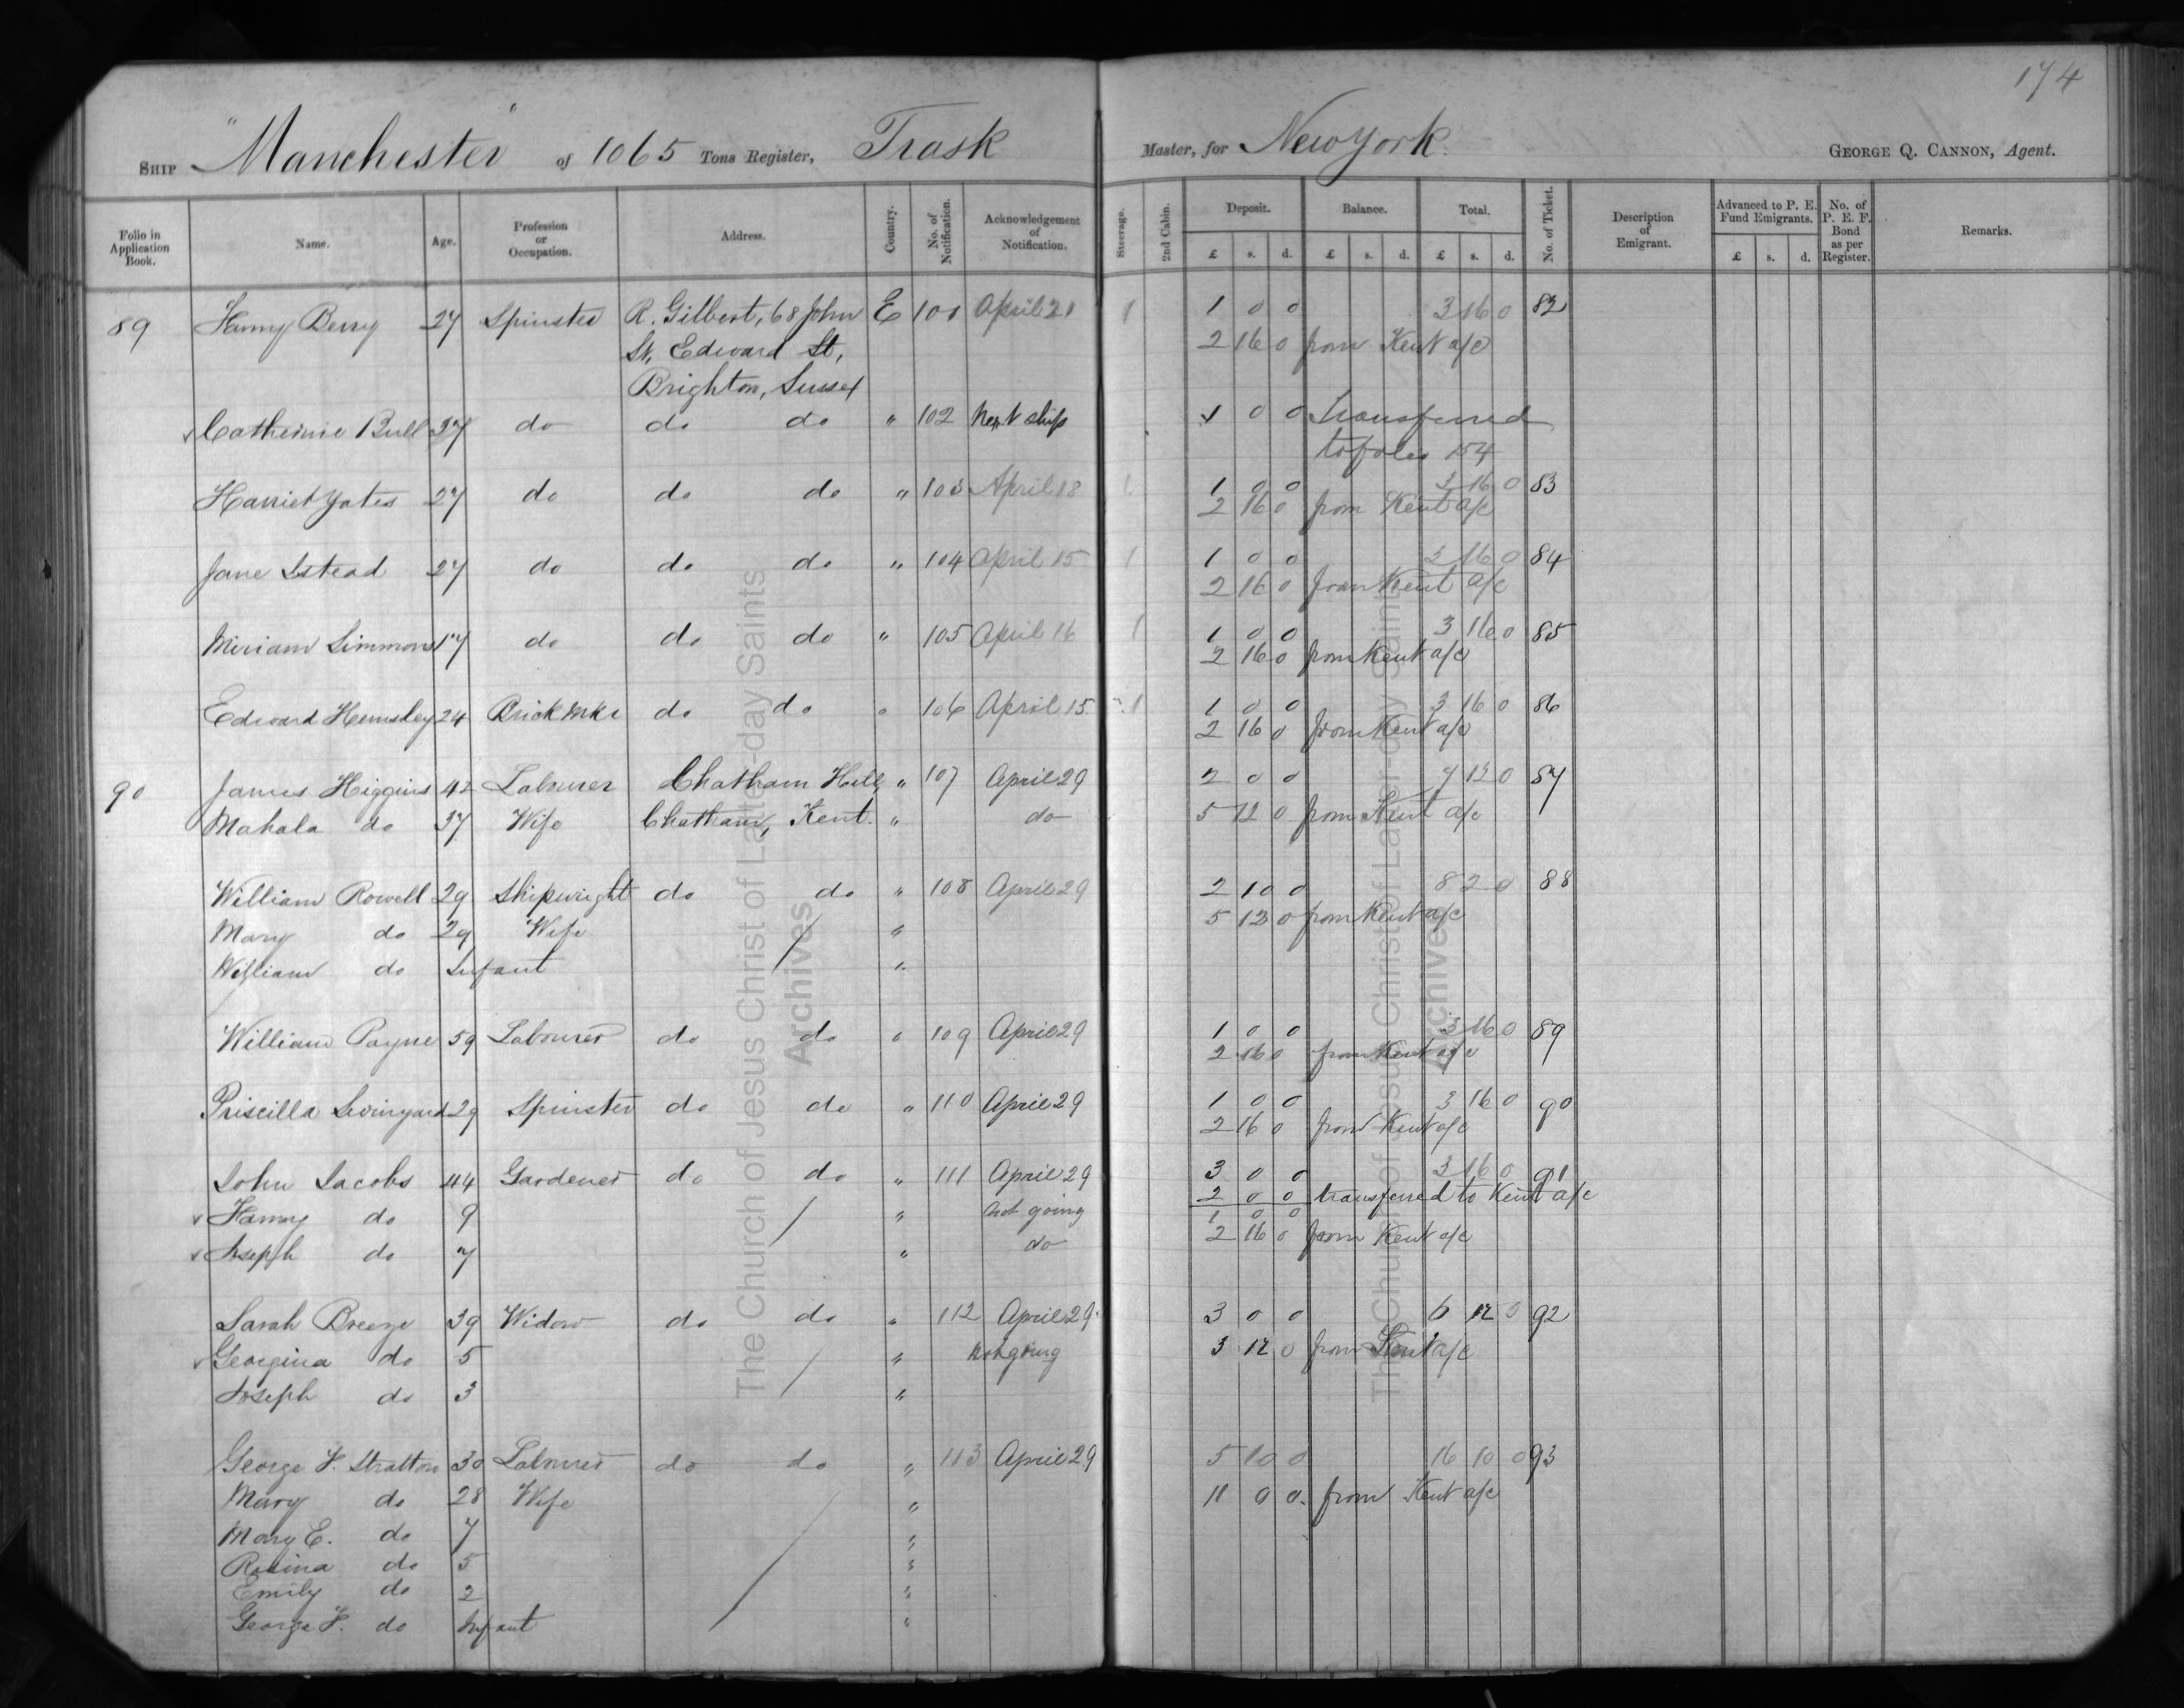 174
Ship "Manchester" of 1065 Tons Register, Trask Master, for New York. George Q. Cannon, Agent.
Folio in Application Book. Name. Age. Profession or Occupation. Address. Country. No. of Notification. Acknowledgement of Notification. Steerage. 2nd Cabin. Deposit. Balance. Total. No. of Ticket. Description of Emigrant. Advanced to P. E. Fund Emigrants. No. of P. E. F. Bond as per Register. Remarks.
£ s. d. £ s. d. £ s. d. £ s. d.
89 Fanny Berry 27 Spinster R. Gilbert, 68 John E 101 April 21 1 1 0 0 3 16 0 82
St, Edward St, 2 16 0 from Kent a/c
Brighton, Sussex
Catherine Bull 27 do do do " 102 Next ship 1 0 0 Transferred
to folio 154
Harriet Yates 27 do do do " 103 April 18 1 1 0 0 3 16 0 83
2 16 0 from Kent a/c
Jane Istead 27 do do do " 104 April 15 1 1 0 0 3 16 0 84
2 16 0 from Kent a/c
Miriam Simmons 17 do do do " 105 April 16 1 1 0 0 3 16 0 85
2 16 0 from Kent a/c
Edward Hemsley 24 Brick Mkr do do " 106 April 15 1 1 0 0 3 16 0 86
2 16 0 from Kent a/c
90 James Higgins 42 Labourer Chatham Hill, " 107 April 29 2 0 0 7 12 0 87
Mahala do 37 Wife Chatham, Kent. " do 5 12 0 from Kent a/c
William Rowell 29 Shipwright do do " 108 April 29 2 10 0 8 2 0 88
Mary do 29 Wife " 5 12 0 from Kent a/c
William do Infant "
William Payne 59 Labourer do do " 109 April 29 1 0 0 3 16 0 89
2 16 0 from Kent a/c
Priscilla 29 Spinster do do " 110 April 29 1 0 0 3 16 0 90
2 16 0 from Kent a/c
John Jacobs 44 Gardener do do " 111 April 29 3 0 0 3 16 0 91
2 0 0 transferred to Kent a/c
Fanny do 9 " not going 1 0 0
Joseph do 7 " do 2 16 0 from Kent a/c
Sarah Breeze 39 Widow do do " 112 April 29 3 0 0 6 12 0 92
Georgina do 5 " not going 3 12 0 from Kent a/c
Joseph do 3 "
George F. Stratton 30 Labourer do do " 113 April 29 5 10 0 16 10 0 93
Mary do 28 Wife " 11 0 0 from Kent a/c
Mary E. do 7 "
Rosina do 5 "
Emily do 2 "
George F. do Infant "
The Church of Jesus Christ of Latter-day Saints
Archives
The Church of Jesus Christ of Latter-day Saints
Archives